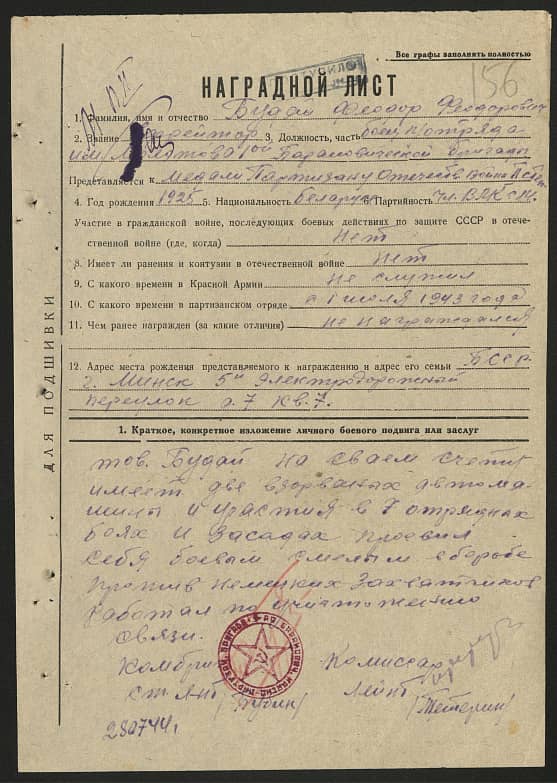 Все графы заполнять полностью
156
НАГРАДНОЙ ЛИСТ
1. Фамилия, имя и отчество Будай Феодор Феодорович
2. Звание 3. Должность, часть боец п/отряда
им. 1ой Барановической бригады
Представляется к медали Партизану Отечеств. войны
4. Год рождения 1925 5. Национальность беларус 6. Партийность чл. ВЛКСМ.
Участие в гражданской войне, последующих боевых действиях по защите СССР в отече-
ственной войне (где, когда) Нет
8. Имеет ли ранения и контузии в отечественной войне Нет
9. С какого времени в Красной Армии не служил
10. С какого времени в партизанском отряде с 1 июля 1943 года
11. Чем ранее награжден (за какие отличия) не награждался
12. Адрес места рождения представляемого к награждению и адрес его семьи БССР
г. Минск 5й Электродорожный
переулок д. 7 кв. 7.
1. Краткое, конкретное изложение личного боевого подвига или заслуг
тов. Будай на сваем счету
имеет две взорваных автома-
шины и участия в 7 отрядных
боях и засадах проевил
себя боевым смелым в борьбе
против немецких захватчиков
работал по унистожению
связи.
Комбриг Комиссар
ст. л-нт Лейт.
/Тетерин/
280744г.
ДЛЯ ПОДШИВКИ